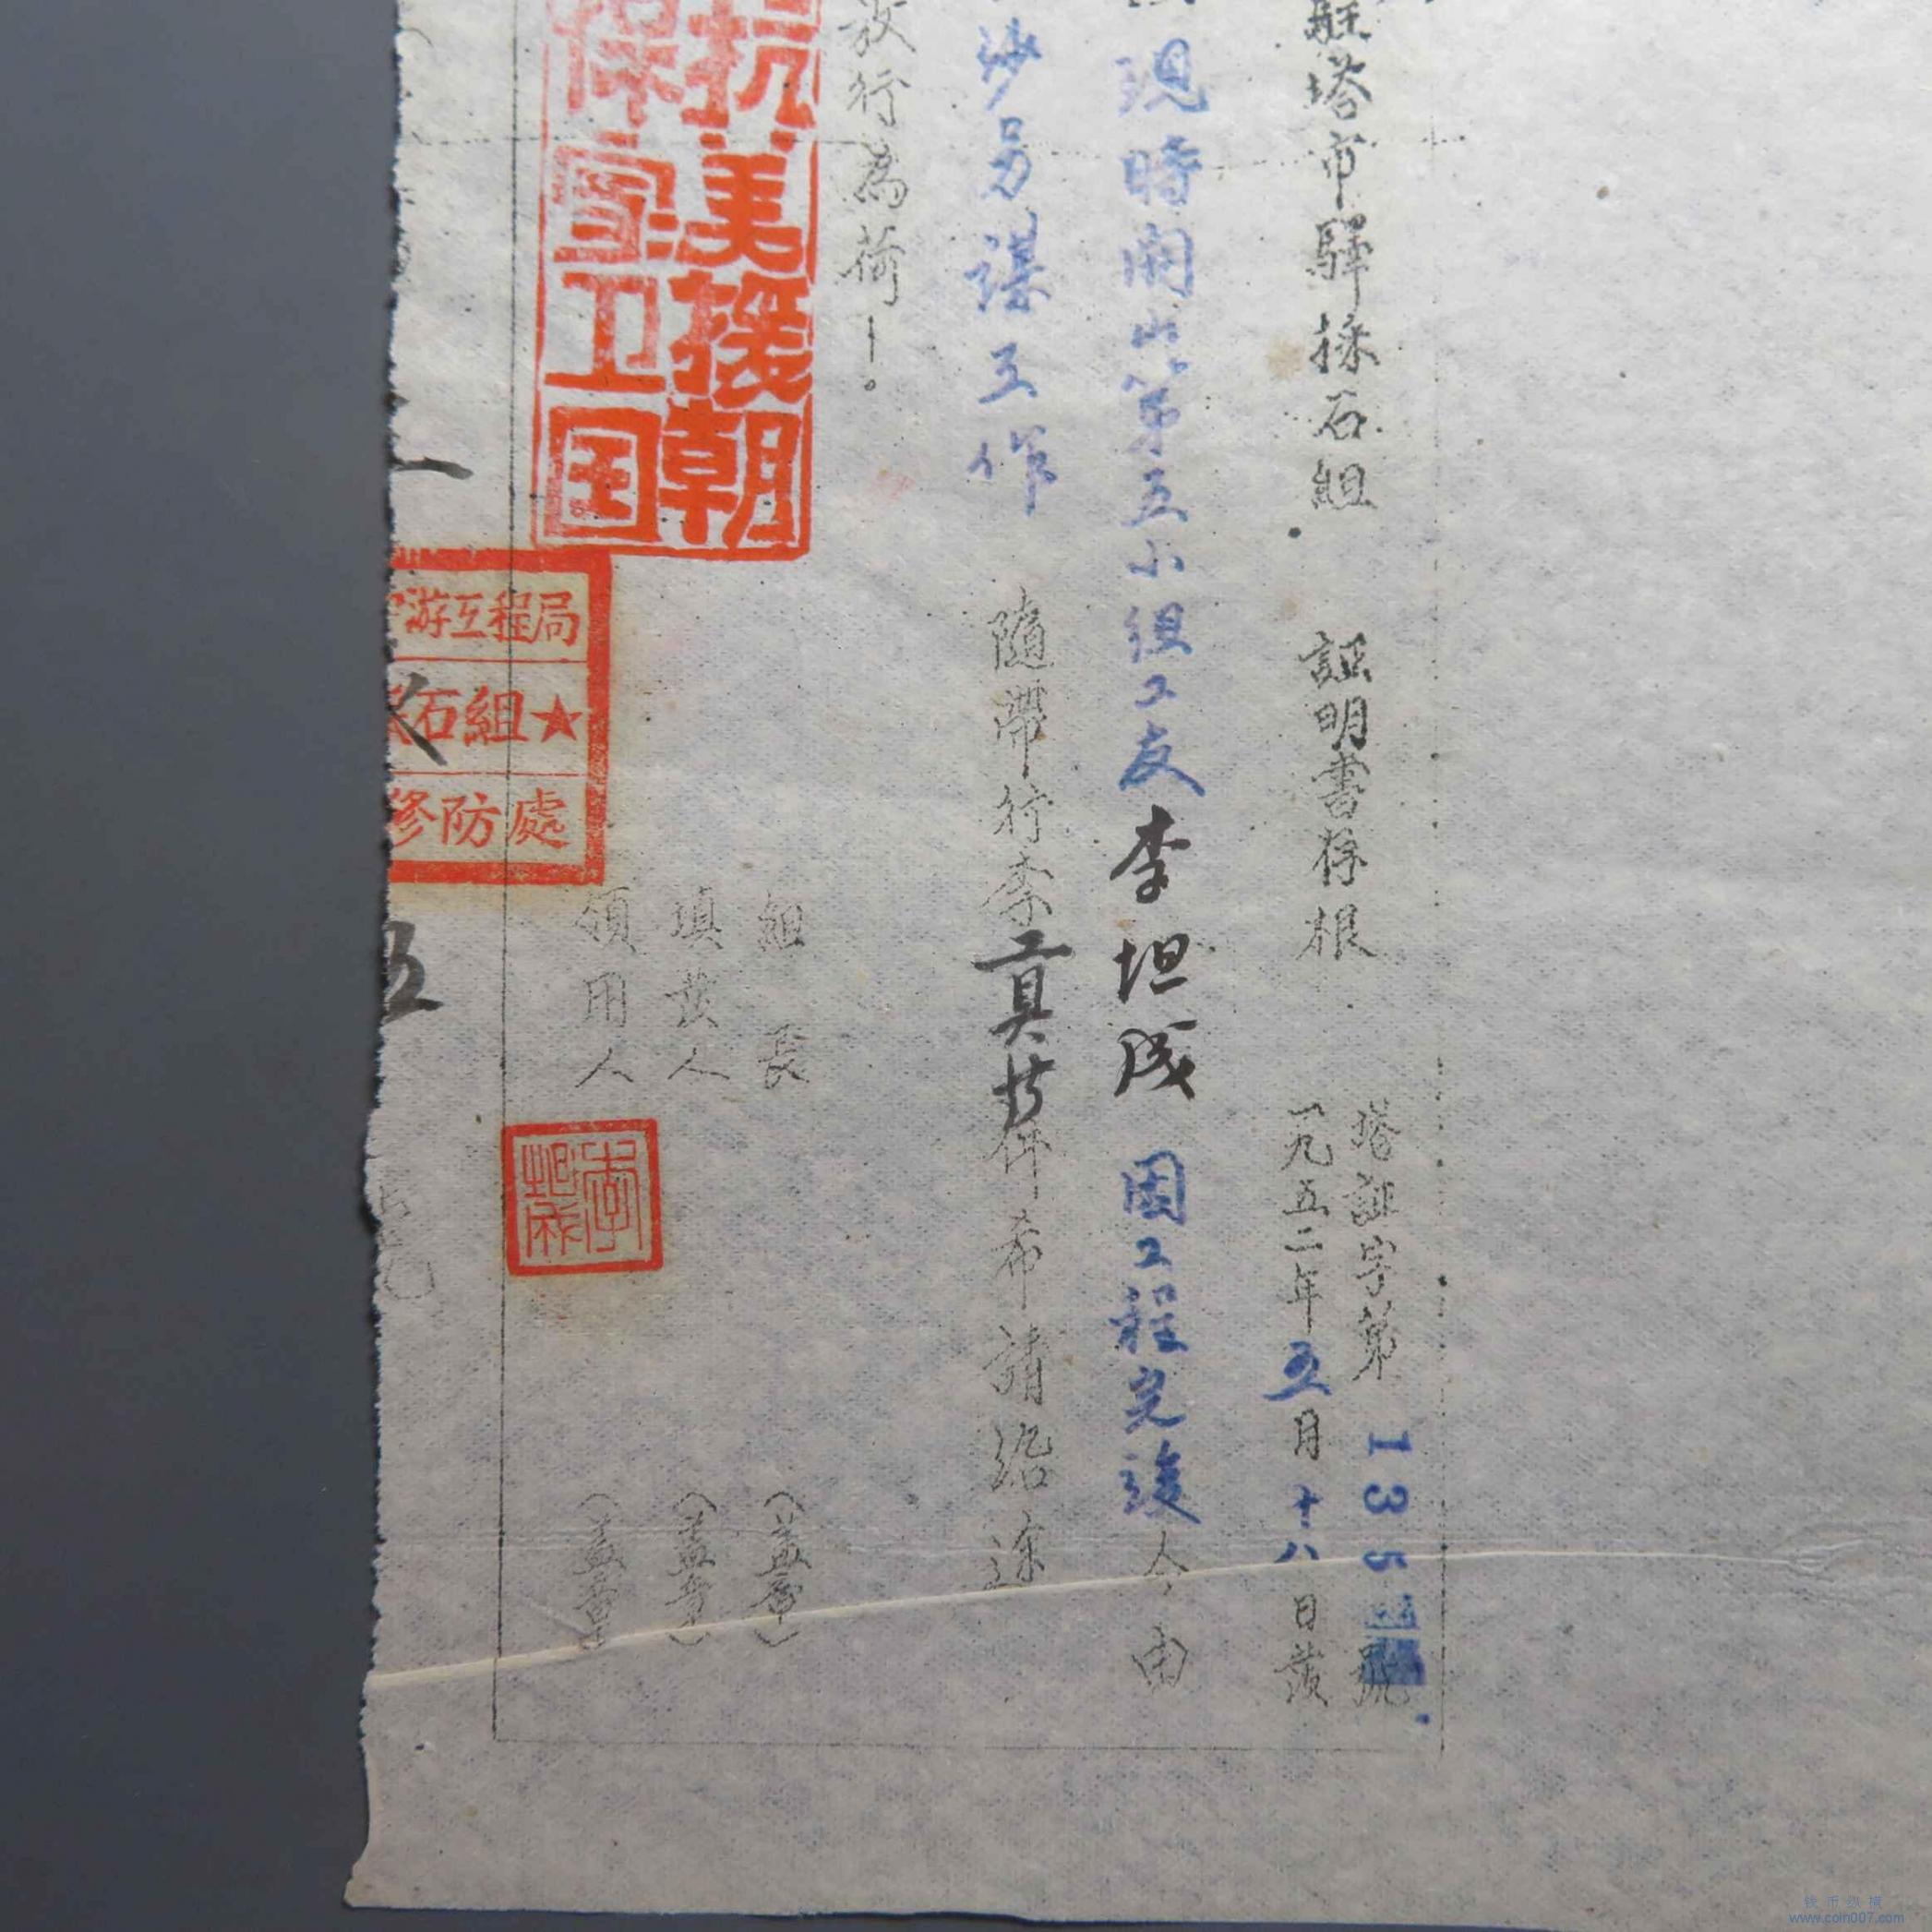 駐塔市驛採石組 証明書存根
塔証字第135號
一九五二年五月十八日發
現時開山第五小組工友李坦成 因工程完竣今由
沙另謀工作 隨帶行李工具共件希請沿途
放行為荷！
組長 （蓋章）
填發人 （蓋章）
領用人 （蓋章）
抗美援朝
保家卫国
游工程局
石組★
修防處
五
www.coin007.com